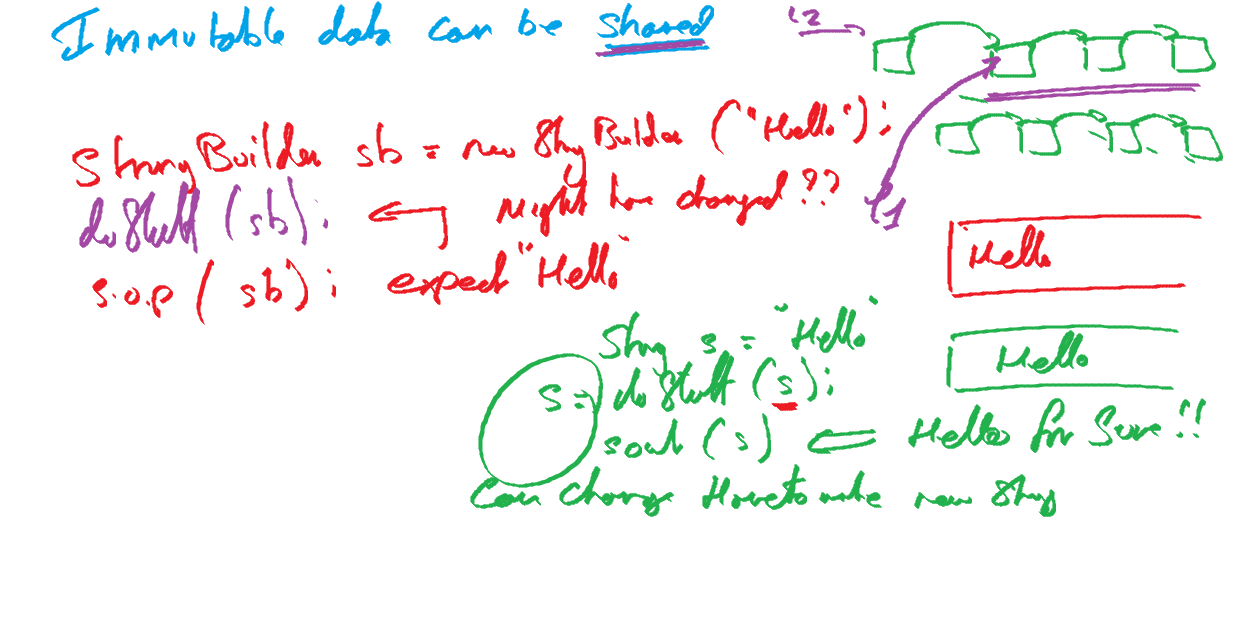 Immutable data can be shared
l2
StringBuilder sb = new StringBuilder ("Hello");
doStuff (sb); Might have changed??
l1
s.o.p ( sb ) ; expect "Hello"
Hello
Hello
String s = "Hello"
s = doStuff (s);
sout (s) Hello for sure!!
Can change Have to make new String